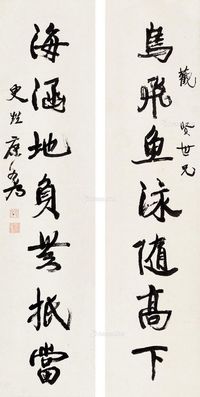 觀 賢世兄
鳥飛魚泳隨高下
海涵地負無抵當
更甡康有為